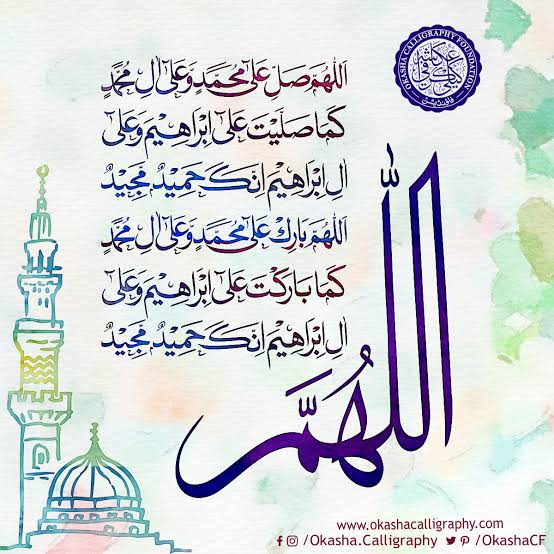 اَللّٰهُمَّ صَلِّ عَلٰى مُحَمَّدٍ وَّعَلٰى اٰلِ مُحَمَّدٍ
كَمَا صَلَّيْتَ عَلٰى اِبْرَاهِيْمَ وَعَلٰى
اٰلِ اِبْرَاهِيْمَ اِنَّكَ حَمِيْدٌ مَّجِيْدٌ
اَللّٰهُمَّ بَارِكْ عَلٰى مُحَمَّدٍ وَّعَلٰى اٰلِ مُحَمَّدٍ
كَمَا بَارَكْتَ عَلٰى اِبْرَاهِيْمَ وَعَلٰى
اٰلِ اِبْرَاهِيْمَ اِنَّكَ حَمِيْدٌ مَّجِيْدٌ
اللّٰهُمَّ
OKASHA CALLIGRAPHY FOUNDATION
www.okashacalligraphy.com
/Okasha.Calligraphy /OkashaCF